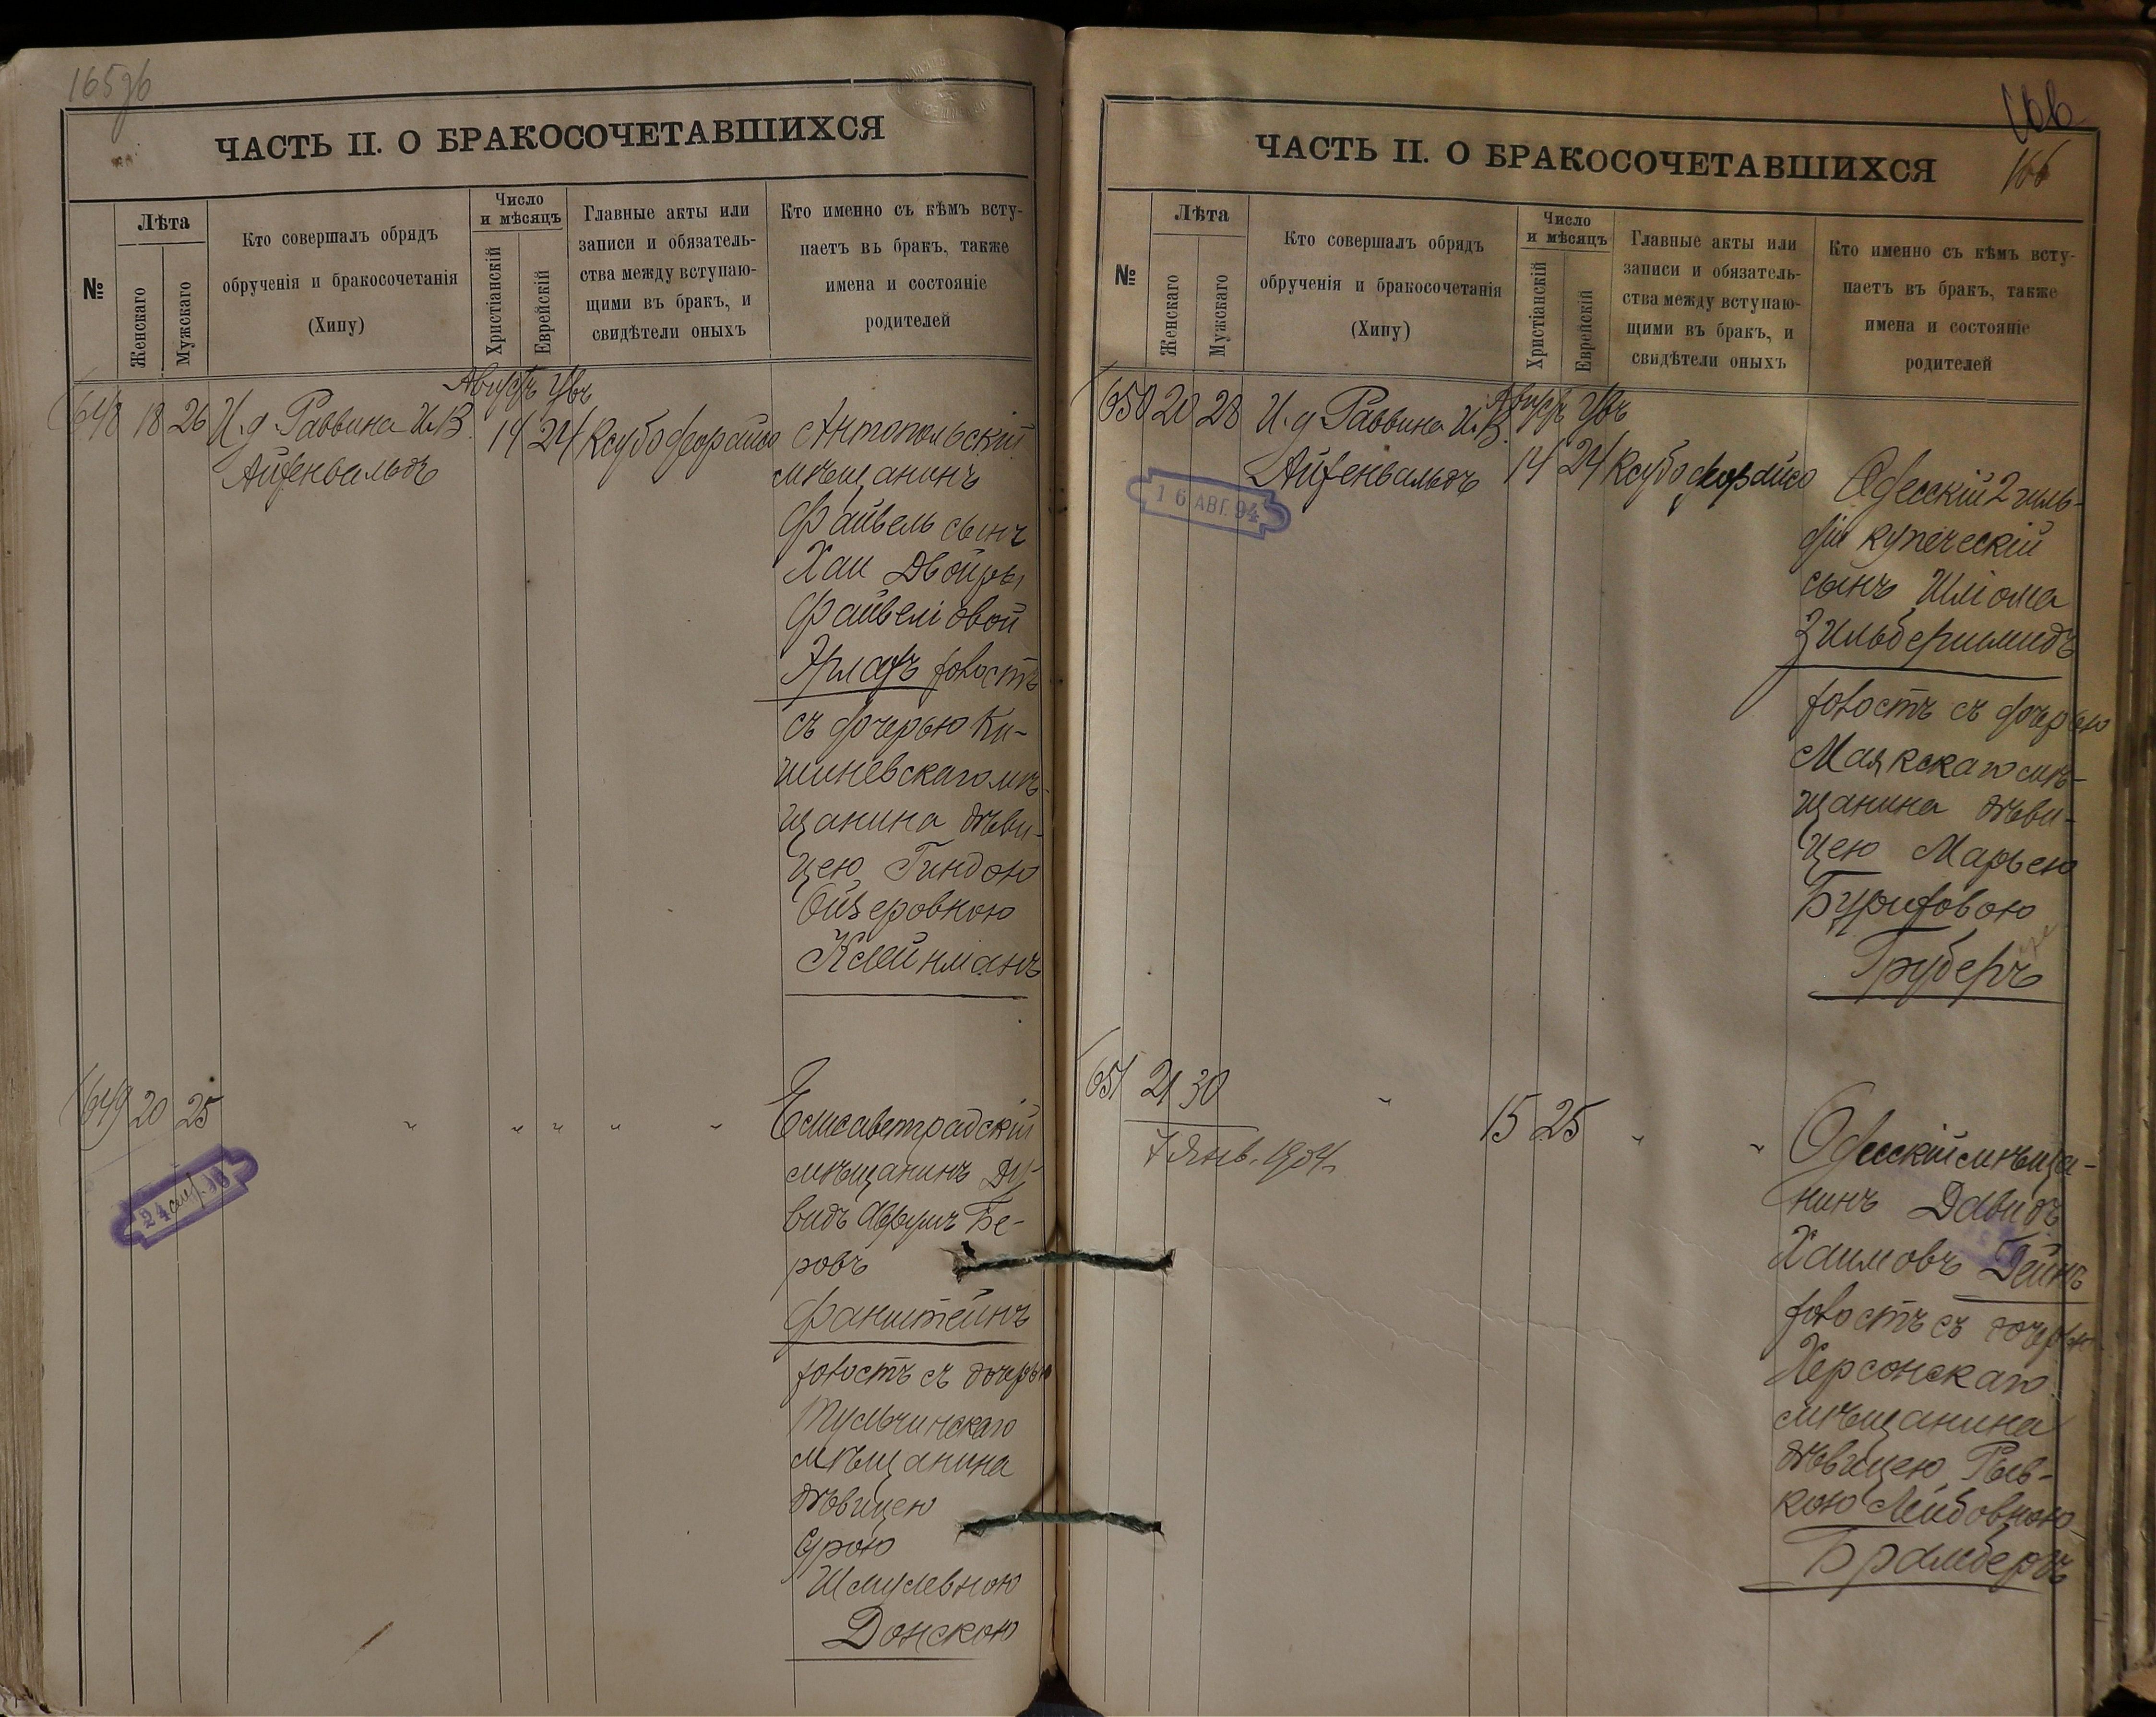 165об
ЧАСТЬ II. О БРАКОСОЧЕТАВШИХСЯ
№
Лѣта
Женскаго
Мужскаго
Кто совершалъ обрядъ
обрученія и бракосочетанія
(Хипу)
Число
и мѣсяцъ
Христіанскій
Еврейскій
Главные акты или
записи и обязатель-
ства между вступаю-
щими въ бракъ, и
свидѣтели оныхъ
Кто именно съ кѣмъ всту-
паетъ въ бракъ, также
имена и состояніе
родителей
648 18 26 И.д. Раввина И.В.
Айзенвальдъ
Августъ Увъ
14 24 Ксубо
Антопольскій
мѣщанинъ
Файвель сынъ
Хаи Двойры
Файвеліовой
холостъ
съ дочерью Ки-
шиневскаго мѣ-
щанина дѣви-
цею Гиндою
Ойзеровною
Клейнманъ
649 20 25 " " " " "
24
Елисаветградскій
мѣщанинъ Ду-
видъ Аврумъ Бе-
ровъ
Файнштейнъ
холостъ съ дочерью
Тульчинскаго
мѣщанина
дѣвицею
Срою
Шмулевною
Донскою
166
166
ЧАСТЬ II. О БРАКОСОЧЕТАВШИХСЯ
№
Лѣта
Женскаго
Мужскаго
Кто совершалъ обрядъ
обрученія и бракосочетанія
(Хипу)
Число
и мѣсяцъ
Христіанскій
Еврейскій
Главные акты или
записи и обязатель-
ства между вступаю-
щими въ бракъ, и
свидѣтели оныхъ
Кто именно съ кѣмъ всту-
паетъ въ бракъ, также
имена и состояніе
родителей
650 20 28 И.д. Раввина И.В.
Айзенвальдъ
16 АВГ. 94
Августъ Увъ
14 24 Ксубо
Одесскій 2 гиль-
діи купеческій
сынъ Шліома
Зильбершмидъ
холостъ съ дочерью
Маякскаго мѣ-
щанина дѣви-
цею Марьею
Груберъ
651 21 30 " 15 25 " "
7 Янв. 1904 г.
Одесскій мѣща-
нинъ Давидъ
Хаимовъ Гейнъ
холостъ съ дочерью
Херсонскаго
мѣщанина
дѣвицею Рыв-
кою Лейбовною